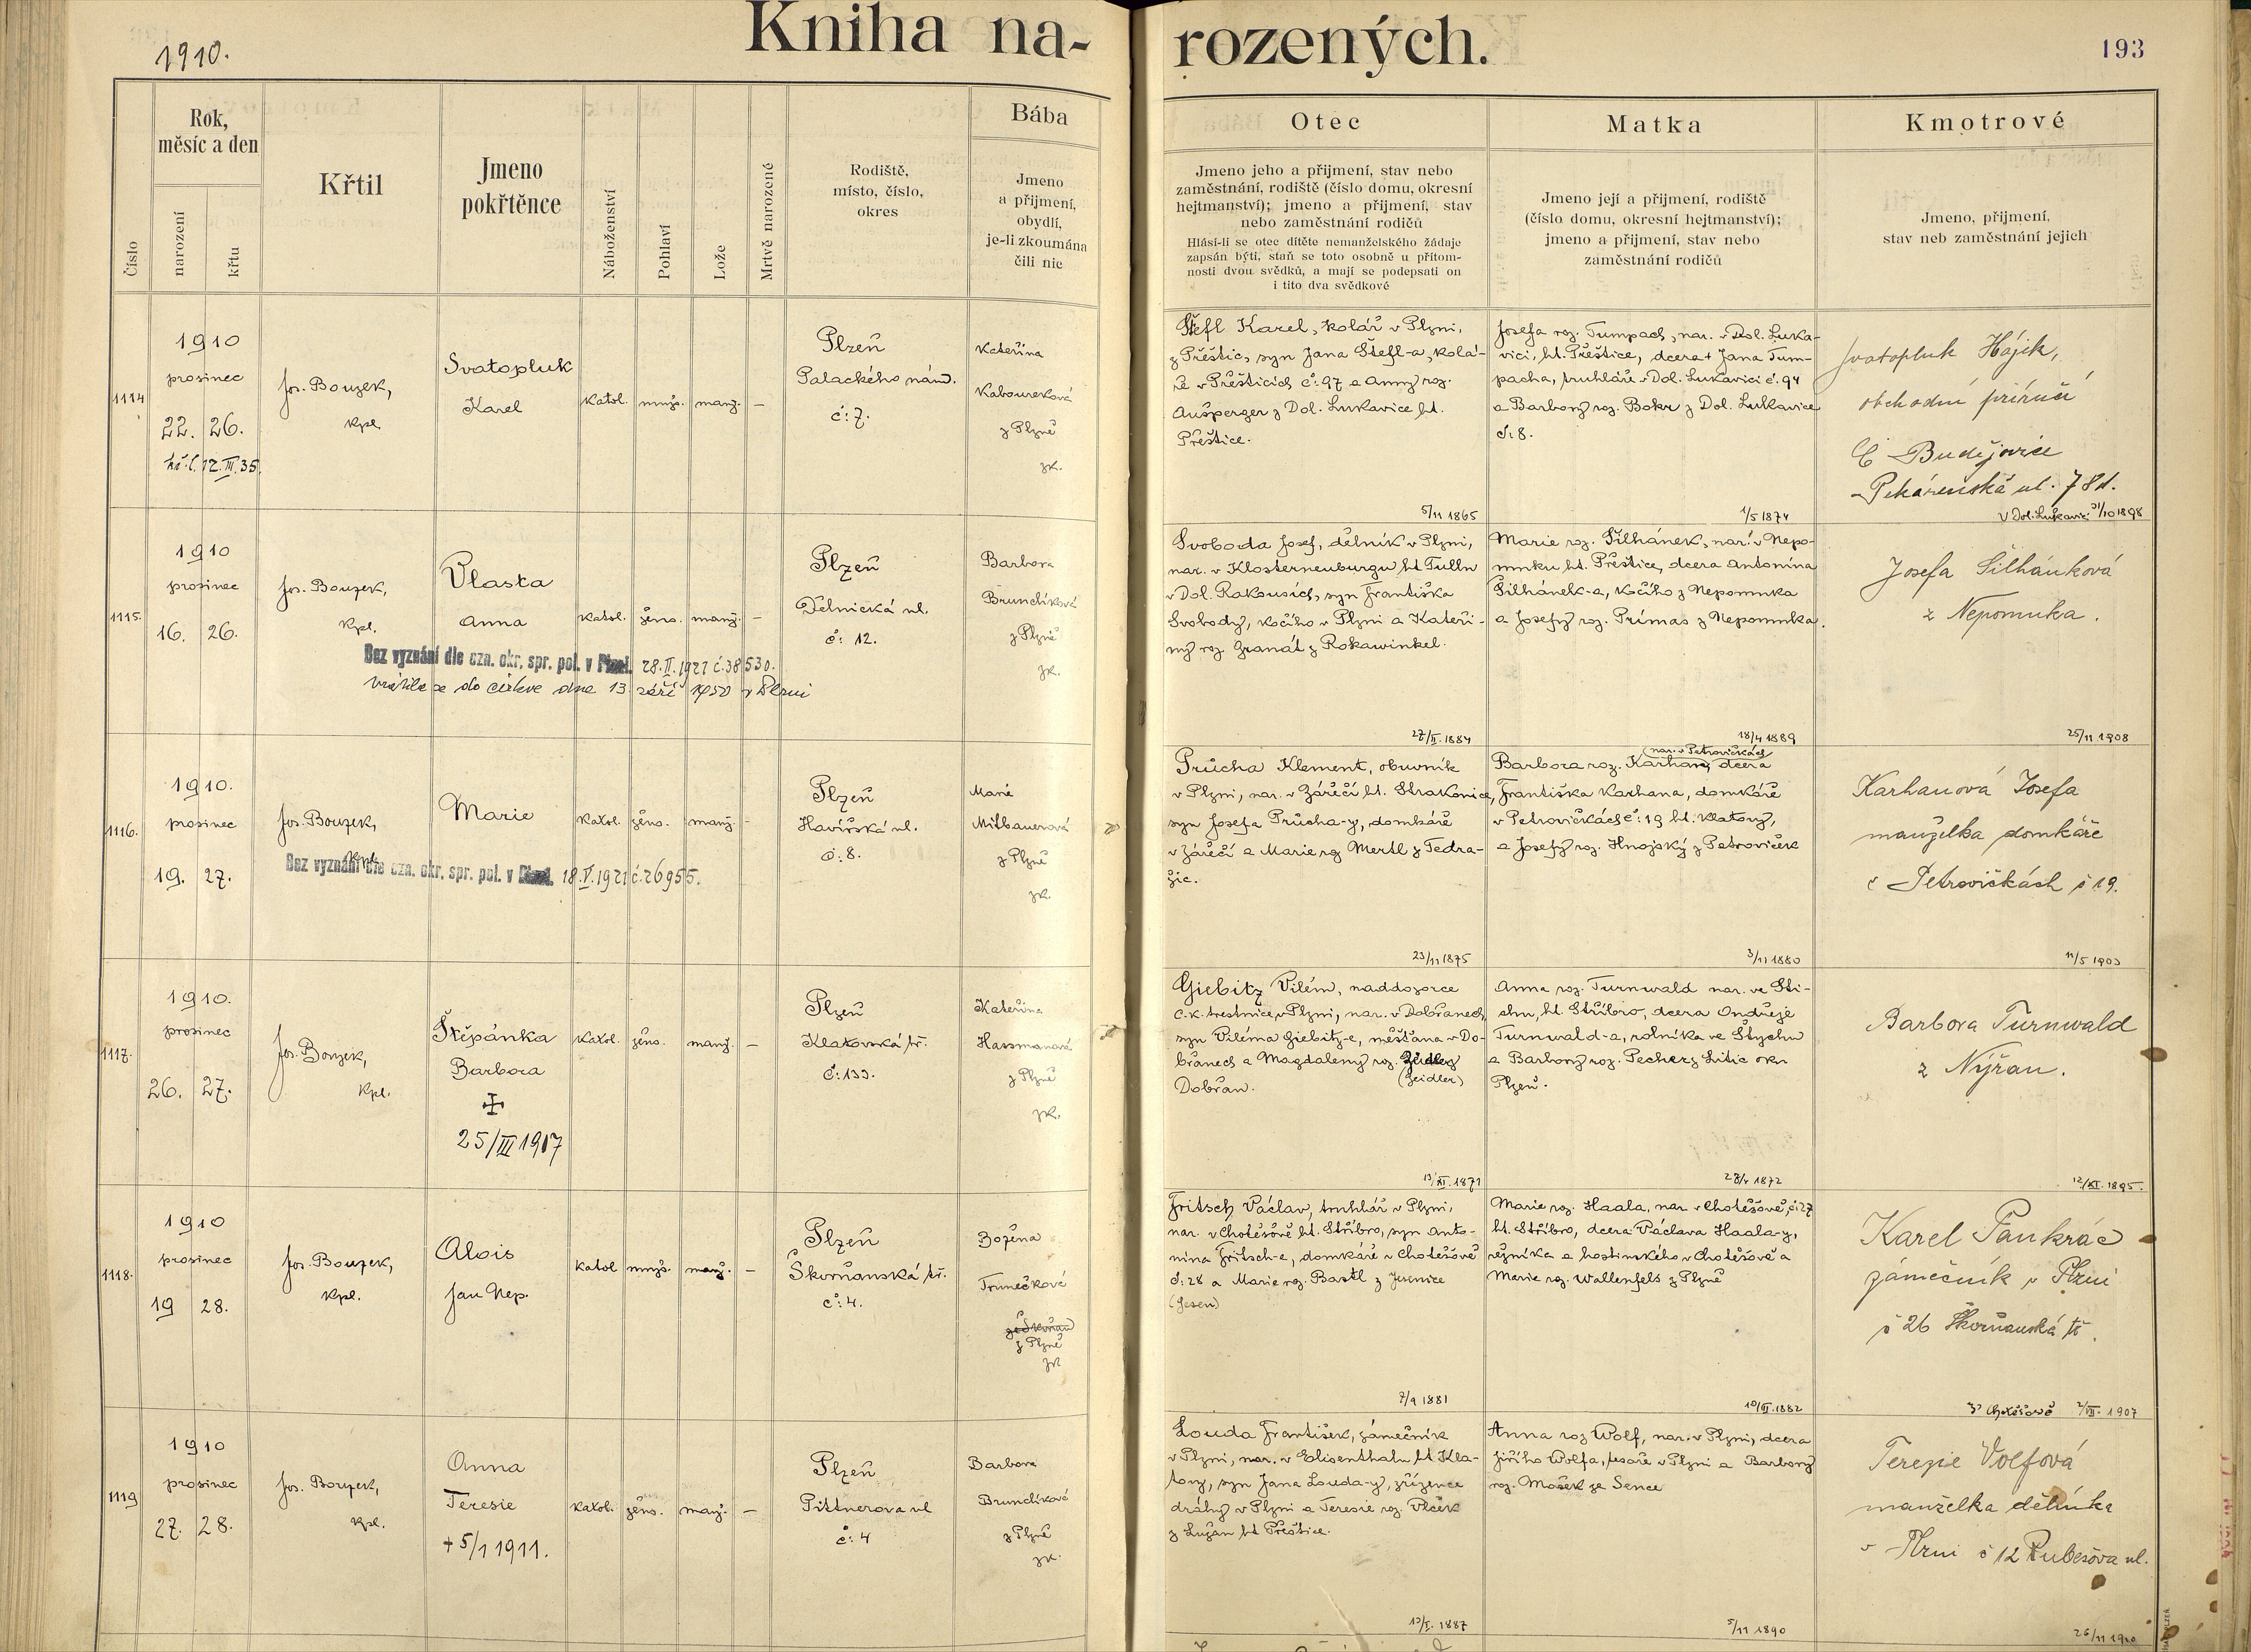 1910.
Kniha na-
rozených.
193
Číslo
Rok,
měsíc a den
narození
křtu
Křtil
Jmeno
pokřtěnce
Náboženství
Pohlaví
Lože
Mrtvě narozené
Rodiště,
místo, číslo,
okres
Bába
Jmeno
a přijmení,
obydlí,
je-li zkoumána
čili nic
Otec
Jmeno jeho a přijmení, stav nebo
zaměstnání, rodiště (číslo domu, okresní
hejtmanství); jmeno a přijmení, stav
nebo zaměstnání rodičů
Hlásí-li se otec dítěte nemanželského žádaje
zapsán býti, staň se toto osobně u přítom-
nosti dvou svědků, a mají se podepsati on
i tito dva svědkové
Matka
Jmeno její a přijmení, rodiště
(číslo domu, okresní hejtmanství);
jmeno a přijmení, stav nebo
zaměstnání rodičů
Kmotrové
Jmeno, přijmení,
stav neb zaměstnání jejich
1114
1910
prosinec
22. 26.
kř. l. 12. III. 35.
Jos. Bouzek,
kpl.
Svatopluk
Karel
katol.
mužs.
manž.
—
Plzeň
Palackého nám.
č: 7.
Kateřina
Kaboureková
z Plzně
zk.
Štefl Karel, kolář v Plzni,
z Přeštic, syn Jana Štefl-a, kolá-
ře v Přešticích č: 97 a Anny roz.
Aušperger z Dol. Lukavice ht.
Přeštice.
5/11 1865
Josefa roz. Tumpach, nar. v Dol. Luka-
vici, ht. Přeštice, dcera + Jana Tum-
pacha, truhláře v Dol. Lukavici č. 94
a Barbory roz. Bokr z Dol. Lukavice
č: 8.
1/5 1874
Svatopluk Hájek,
obchodní příručí
Č Budějovice
Pekárenská ul. 78 d.
V Dol. Lukavici 31/10 1898
1115.
1910
prosinec
16. 26.
Jos. Bouzek,
kpl.
Vlasta
Anna
katol.
žens.
manž.
—
Plzeň
Dělnická ul.
č: 12.
Barbora
Brunclíková
z Plzně
zk.
Bez vyznání dle ozn. okr. spr. pol. v Plzni. 28. II. 1921 č. 38530.
vrátila se do církve dne 13. září 1950 v Plzni
Svoboda Josef, dělník v Plzni,
nar. v Klosterneuburgu ht Tulln
v Dol. Rakousích, syn Františka
Svobody, kočího v Plzni a Kateři-
ny roz Granát z Rokawinkel.
27/II. 1884
Marie roz. Šilhánek, nar. v Nepo-
muku ht. Přeštice, dcera Antonína
Šilhánek-a, kočího z Nepomuka
a Josefy roz. Prímas z Nepomuka.
18/4 1889
Josefa Šilhánková
z Nepomuka.
25/11 1908
1116.
1910.
prosinec
19. 27.
Jos. Bouzek,
kpl.
Marie
katol.
žens.
manž.
-
Plzeň
Havířská ul.
č: 8.
Marie
Milbauerová
z Plzně
zk.
Bez vyznání dle ozn. okr. spr. pol. v Plzni. 18. V. 1921 č. 26955.
Průcha Klement, obuvník
v Plzni, nar. v Zářečí ht. Strakonice,
syn Josefa Průcha-y, domkáře
v Zářečí a Marie roz Mertl z Tedra-
žic.
23/11 1875
(nar. v Petrovičkách
Barbora roz. Karhan, dcera
Františka Karhana, domkáře
v Petrovičkách č: 19 ht. Klatovy,
a Josefy roz. Hnojský z Petroviček
3/11 1880
Karhanová Josefa
manželka domkáře
v Petrovičkách č 19.
11/5 1903
1117.
1910.
prosinec
26. 27.
Jos. Bouzek,
kpl.
Štěpánka
Barbora
25/III 1917
katol.
žens.
manž.
—
Plzeň
Klatovská tř.
č: 133.
Kateřina
Hassmanová
z Plzně
zk.
Giebitz Vilém, naddozorce
c. k. trestnice v Plzni, nar. v Dobřanech,
syn Viléma Giebitz-e, měšťana v Do-
břanech a Magdaleny roz.
(Zeidler)
Dobřan.
13/XI. 1871
Anna roz. Turnwald nar. ve Šti-
chu, ht. Stříbro, dcera Ondřeje
Turnwald-a, rolníka ve Štychu
a Barbory roz. Pecher z Litic okr
Plzeň.
28/4 1872
Barbora Turnwald
z Nýřan.
12/XI. 1895.
1118.
1910
prosinec
19 28.
Jos. Bouzek,
kpl.
Alois
Jan Nep.
katol
mužs.
manž.
—
Plzeň
Škvrňanská tř.
č: 4.
Božena
Trunečková
ze Škvrňan
z Plzně
zk
Fritsch Václav, truhlář v Plzni,
nar. v Chotěšově ht. Stříbro, syn Anto-
nína Fritsch-e, domkáře v Chotěšově
č: 28 a Marie roz. Bastl z Jesenice
(Jesen)
7/9 1881
Marie roz. Haala, nar. v Chotěšově, č: 27
ht. Stříbro, dcera Václava Haala-y,
řezníka a hostinského v Chotěšově a
Marie roz. Wallenfels z Plzně
10/III. 1882
Karel Pankrác
zámečník v Plzni
č 26 Škvrňanská tř.
V Chotěšově 2/VII. 1907
1119
1910
prosinec
27. 28.
Jos. Bouzek,
kpl.
Anna
Teresie
+ 5/1 1911.
katol.
žens.
manž.
—
Plzeň
Pittnerova ul
č: 4
Barbora
Brunclíková
z Plzně
zk.
Louda František, zámečník
v Plzni, nar. v Elisenthalu ht Kla-
tovy, syn Jana Louda-y, zřízence
dráhy v Plzni a Teresie roz. Vlček
z Lužan ht Přeštice.
13/I. 1887
Anna roz Wolf, nar. v Plzni, dcera
Jiřího Wolfa, tesaře v Plzni a Barbory
roz. Mašek ze Sence
5/11 1890
Terezie Volfová
manželka dělníka
v Plzni č 12 Rubešova ul.
26/11 1910